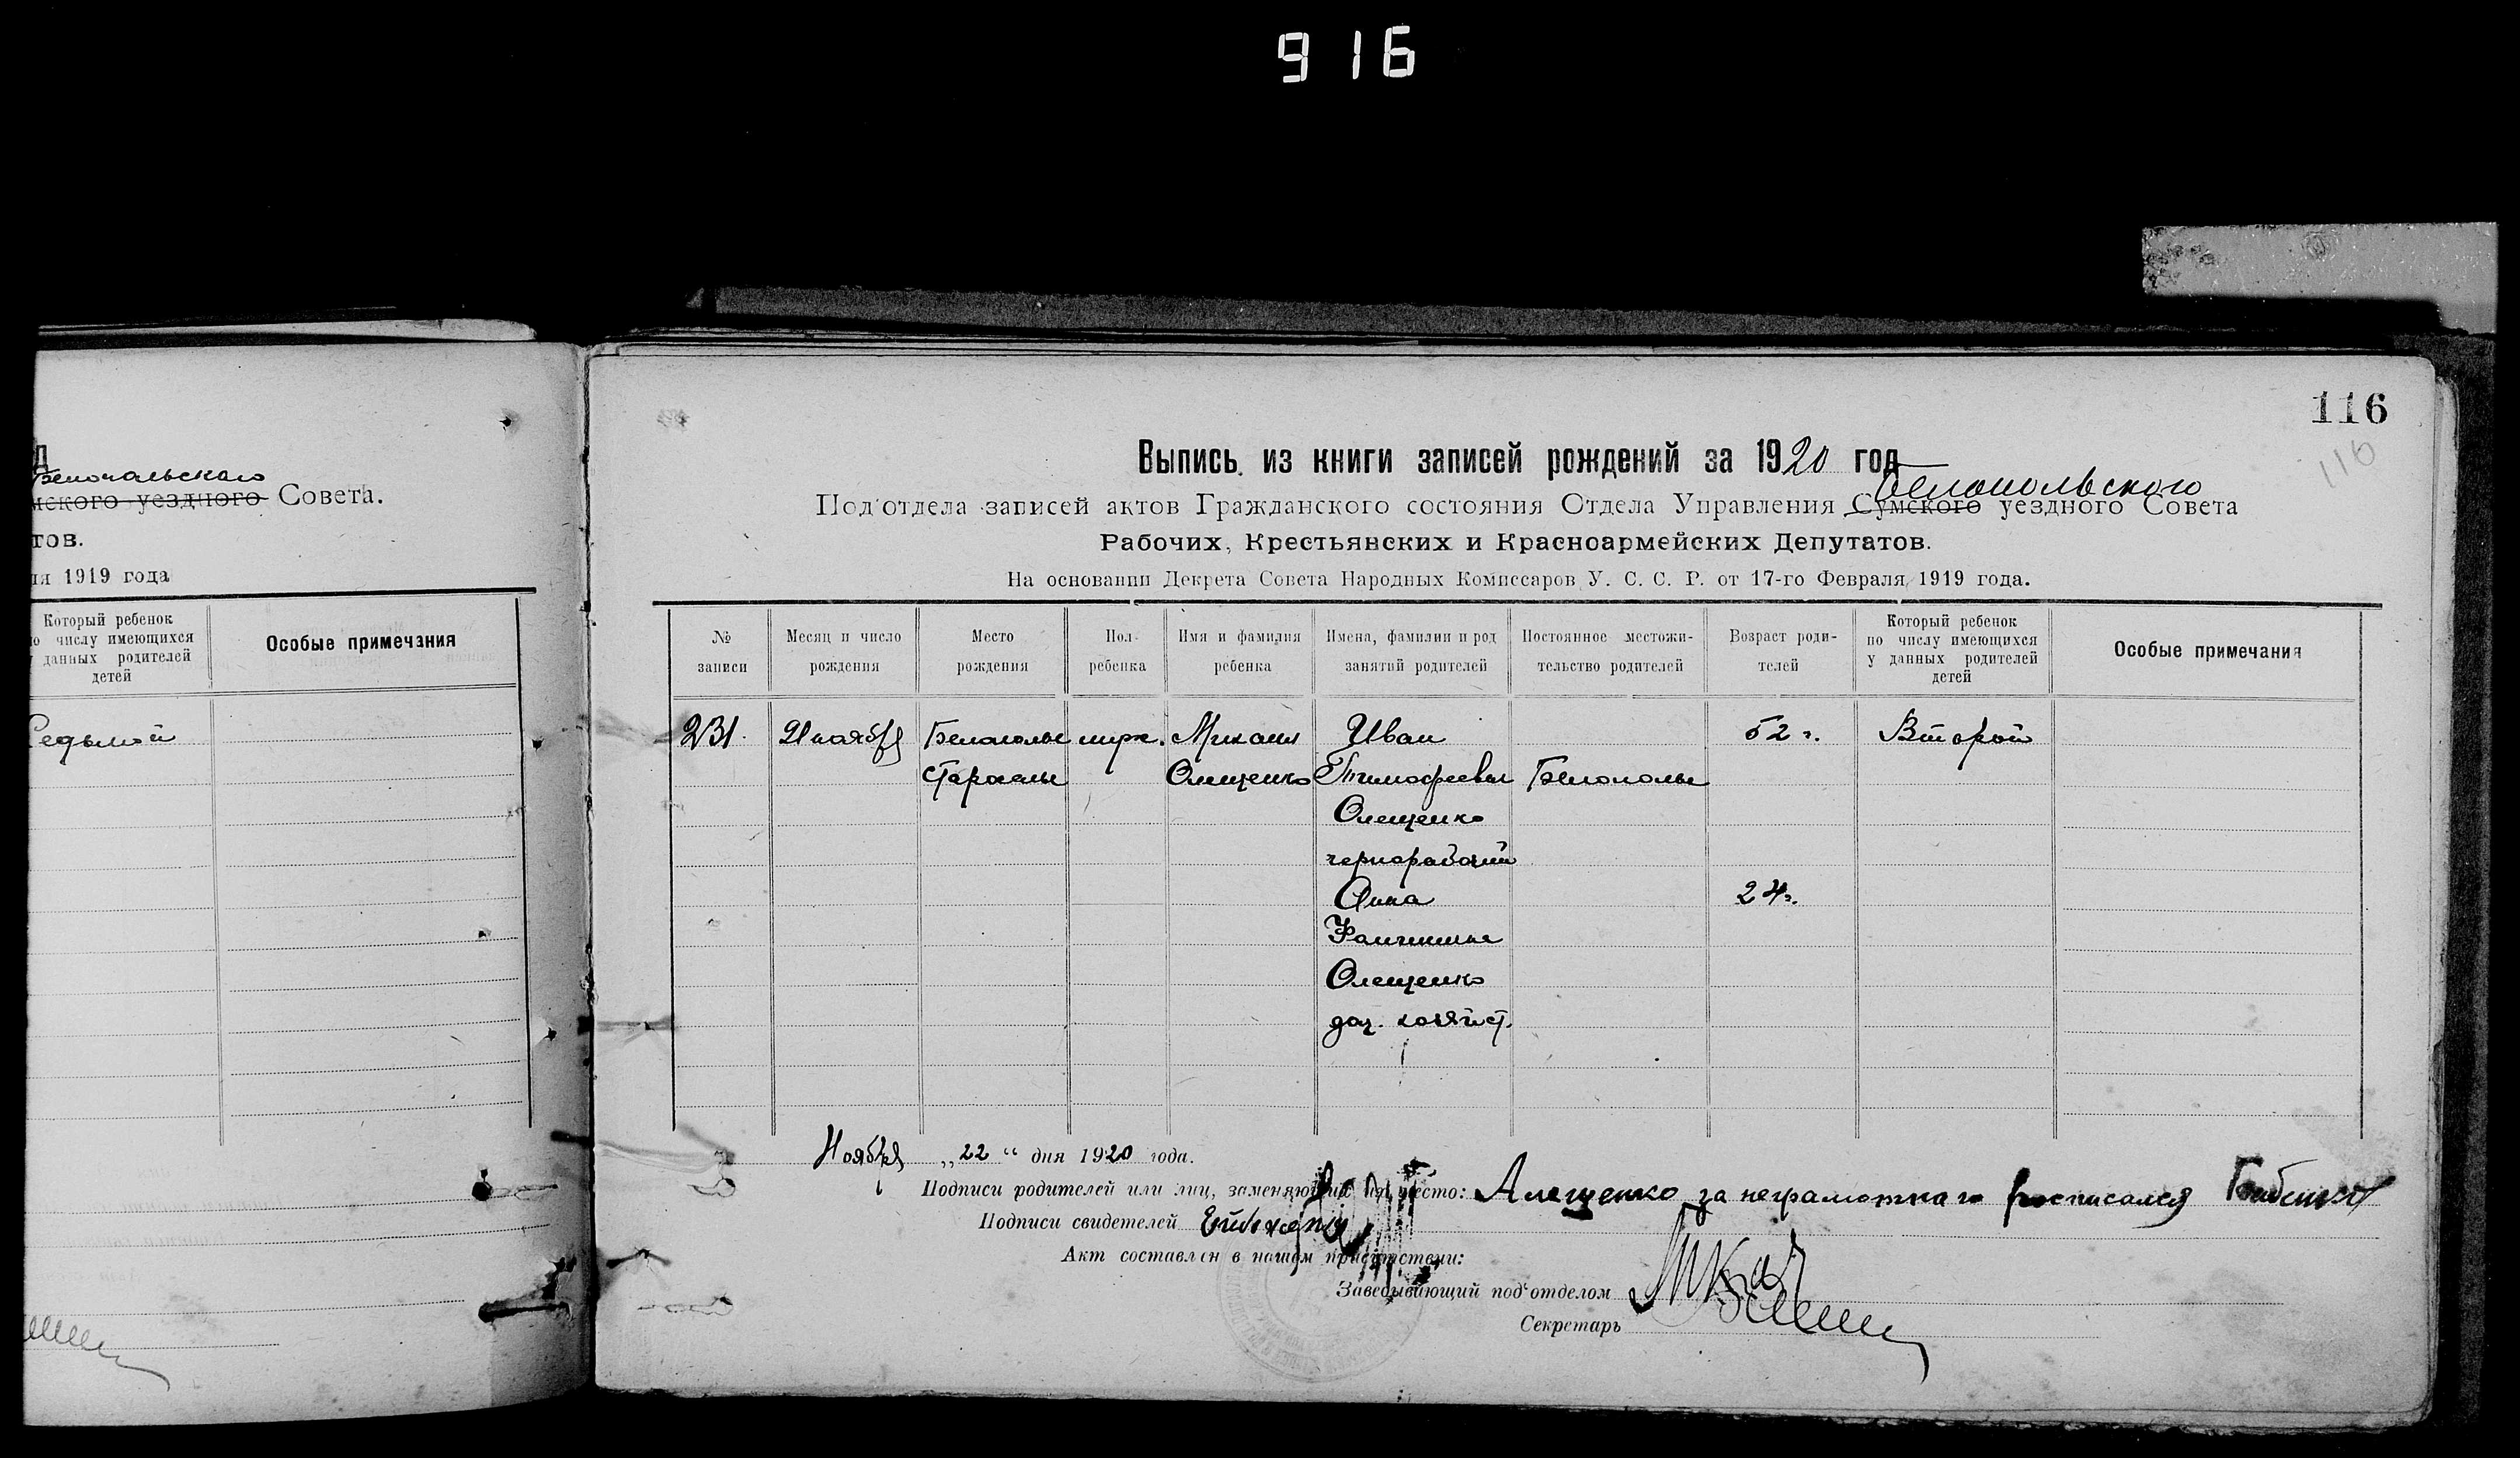 916
Д
Белопольского
мского уездного Совета.
тов.
ля 1919 года
Который ребенок
по числу имеющихся
у данных родителей
детей
Особые примечания
Седьмой
116
116
Выпись из книги записей рождений за 1920 год
Белопольского
Под'отдела записей актов Гражданского состояния Отдела Управления Сумского уездного Совета
Рабочих, Крестьянских и Красноармейских Депутатов.
На основании Декрета Совета Народных Комиссаров У. С. С. Р. от 17-го Февраля 1919 года.
№ записи
Месяц и число рождения
Место рождения
Пол ребенка
Имя и фамилия ребенка
Имена, фамилии и род занятий родителей
Постоянное местожительство родителей
Возраст родителей
Который ребенок по числу имеющихся у данных родителей детей
Особые примечания
231. 21 ноября Белополье муж. Михаил Иван 52 г. Второй
Староселье Олещенко Тимофеевич Белополье
Олещенко
чернорабочий
Анна 24 г.
Олещенко
дом. хозяйст.
Ноября „22“ дня 1920 года.
Подписи родителей или лиц, заменяющих их место: Алещенко за неграмотнаго росписался
Подписи свидетелей
Акт составлен в нашем присутствии:
Заведывающий под'отделом
Секретарь